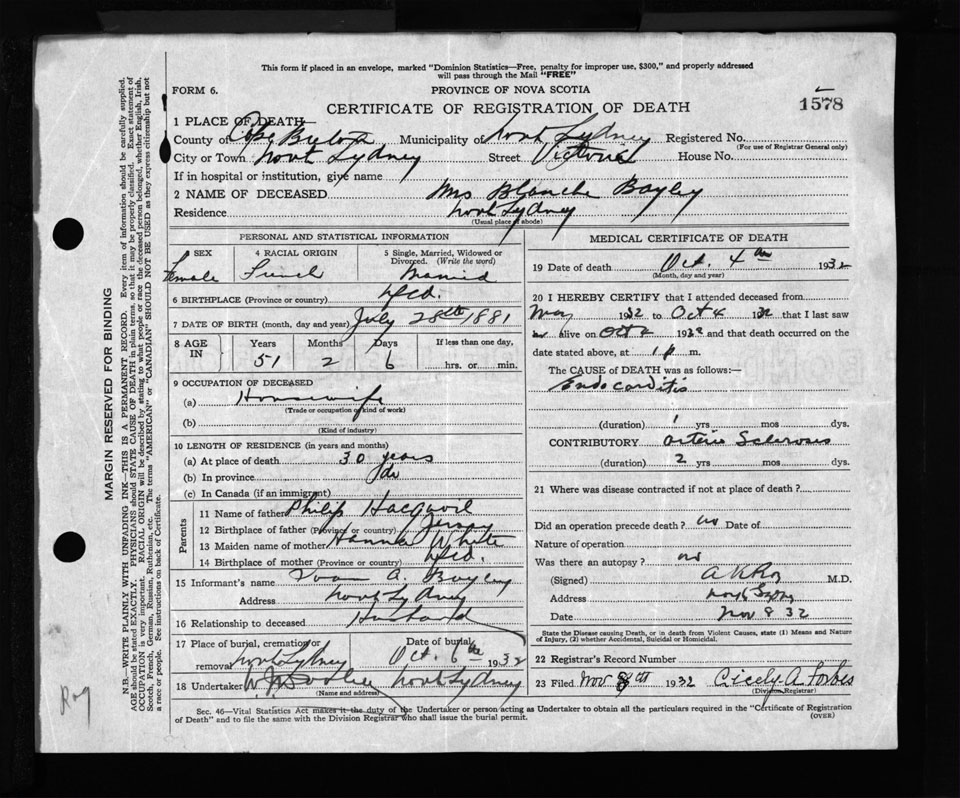 This form if placed in an envelope, marked "Dominion Statistics—Free, penalty for improper use, $300," and properly addressed
will pass through the Mail "FREE"
FORM 6.
PROVINCE OF NOVA SCOTIA
CERTIFICATE OF REGISTRATION OF DEATH
1578
1 PLACE OF DEATH
County of Cape Breton Municipality of North Sydney Registered No.
(For use of Registrar General only)
City or Town North Sydney Street Victoria House No.
If in hospital or institution, give name
2 NAME OF DECEASED Mrs Blanche Bayley
Residence North Sydney
(Usual place of abode)
PERSONAL AND STATISTICAL INFORMATION
4 SEX 4 RACIAL ORIGIN 5 Single, Married, Widowed or
Divorced. (Write the word)
Female French Married
6 BIRTHPLACE (Province or country) Nfld.
7 DATE OF BIRTH (month, day and year) July 28th 1881
8 AGE IN Years Months Days If less than one day,
51 2 6 hrs. or min.
9 OCCUPATION OF DECEASED
(a) Housewife
(Trade or occupation of kind of work)
(b)
(Kind of industry)
10 LENGTH OF RESIDENCE (in years and months)
(a) At place of death 30 years
(b) In province do
(c) In Canada (if an immigrant)
Parents
11 Name of father Philip
12 Birthplace of father (Province or country) Jersey
13 Maiden name of mother Hanna White
14 Birthplace of mother (Province or country) Nfld.
15 Informant's name A. Bayley
Address North Sydney
16 Relationship to deceased Husband
17 Place of burial, cremation or Date of burial
removal North Sydney Oct. 6th 1932
18 Undertaker North Sydney
(Name and address)
MEDICAL CERTIFICATE OF DEATH
19 Date of death Oct. 4th 1932
(Month, day and year)
20 I HEREBY CERTIFY that I attended deceased from
May 1932 to Oct 4 1932 that I last saw
alive on Oct 4 1932 and that death occurred on
the date stated above, at 1 p m.
The CAUSE of DEATH was as follows:—
Endocarditis
(duration) 1 yrs mos dys.
CONTRIBUTORY Arterio Sclerosis
(duration) 2 yrs mos dys.
21 Where was disease contracted if not at place of death?
Did an operation precede death? no Date of
Nature of operation
Was there an autopsy? no
(Signed) A K Roy M.D.
Address North Sydney
Date Nov 8 32
State the Disease causing Death, or in death from Violent Causes, state (1) Means and Nature
of Injury, (2) whether Accidental, Suicidal or Homicidal.
22 Registrar's Record Number
23 Filed Nov 8th 1932 Cicely A Forbes
(Division Registrar)
Sec. 46—Vital Statistics Act makes it the duty of the Undertaker or person acting as Undertaker to obtain all the particulars required in the "Certificate of Registration
of Death" and to file the same with the Division Registrar who shall issue the burial permit.
(OVER)
MARGIN RESERVED FOR BINDING
N.B.—WRITE PLAINLY WITH UNFADING INK—THIS IS A PERMANENT RECORD. Every item of information should be carefully supplied.
AGE should be stated EXACTLY. PHYSICIANS should STATE CAUSE OF DEATH in plain terms, so that it may be properly classified. Exact statement of
OCCUPATION is very important. RACIAL ORIGIN will be described by stating to what people or race the deceased person belonged, whether English, Irish,
Scotch, French, German, Russian, Ruthenian, etc. The terms "AMERICAN" or "CANADIAN" SHOULD NOT BE USED as they express citizenship but not
a race or people. See instructions on back of Certificate.
Roy